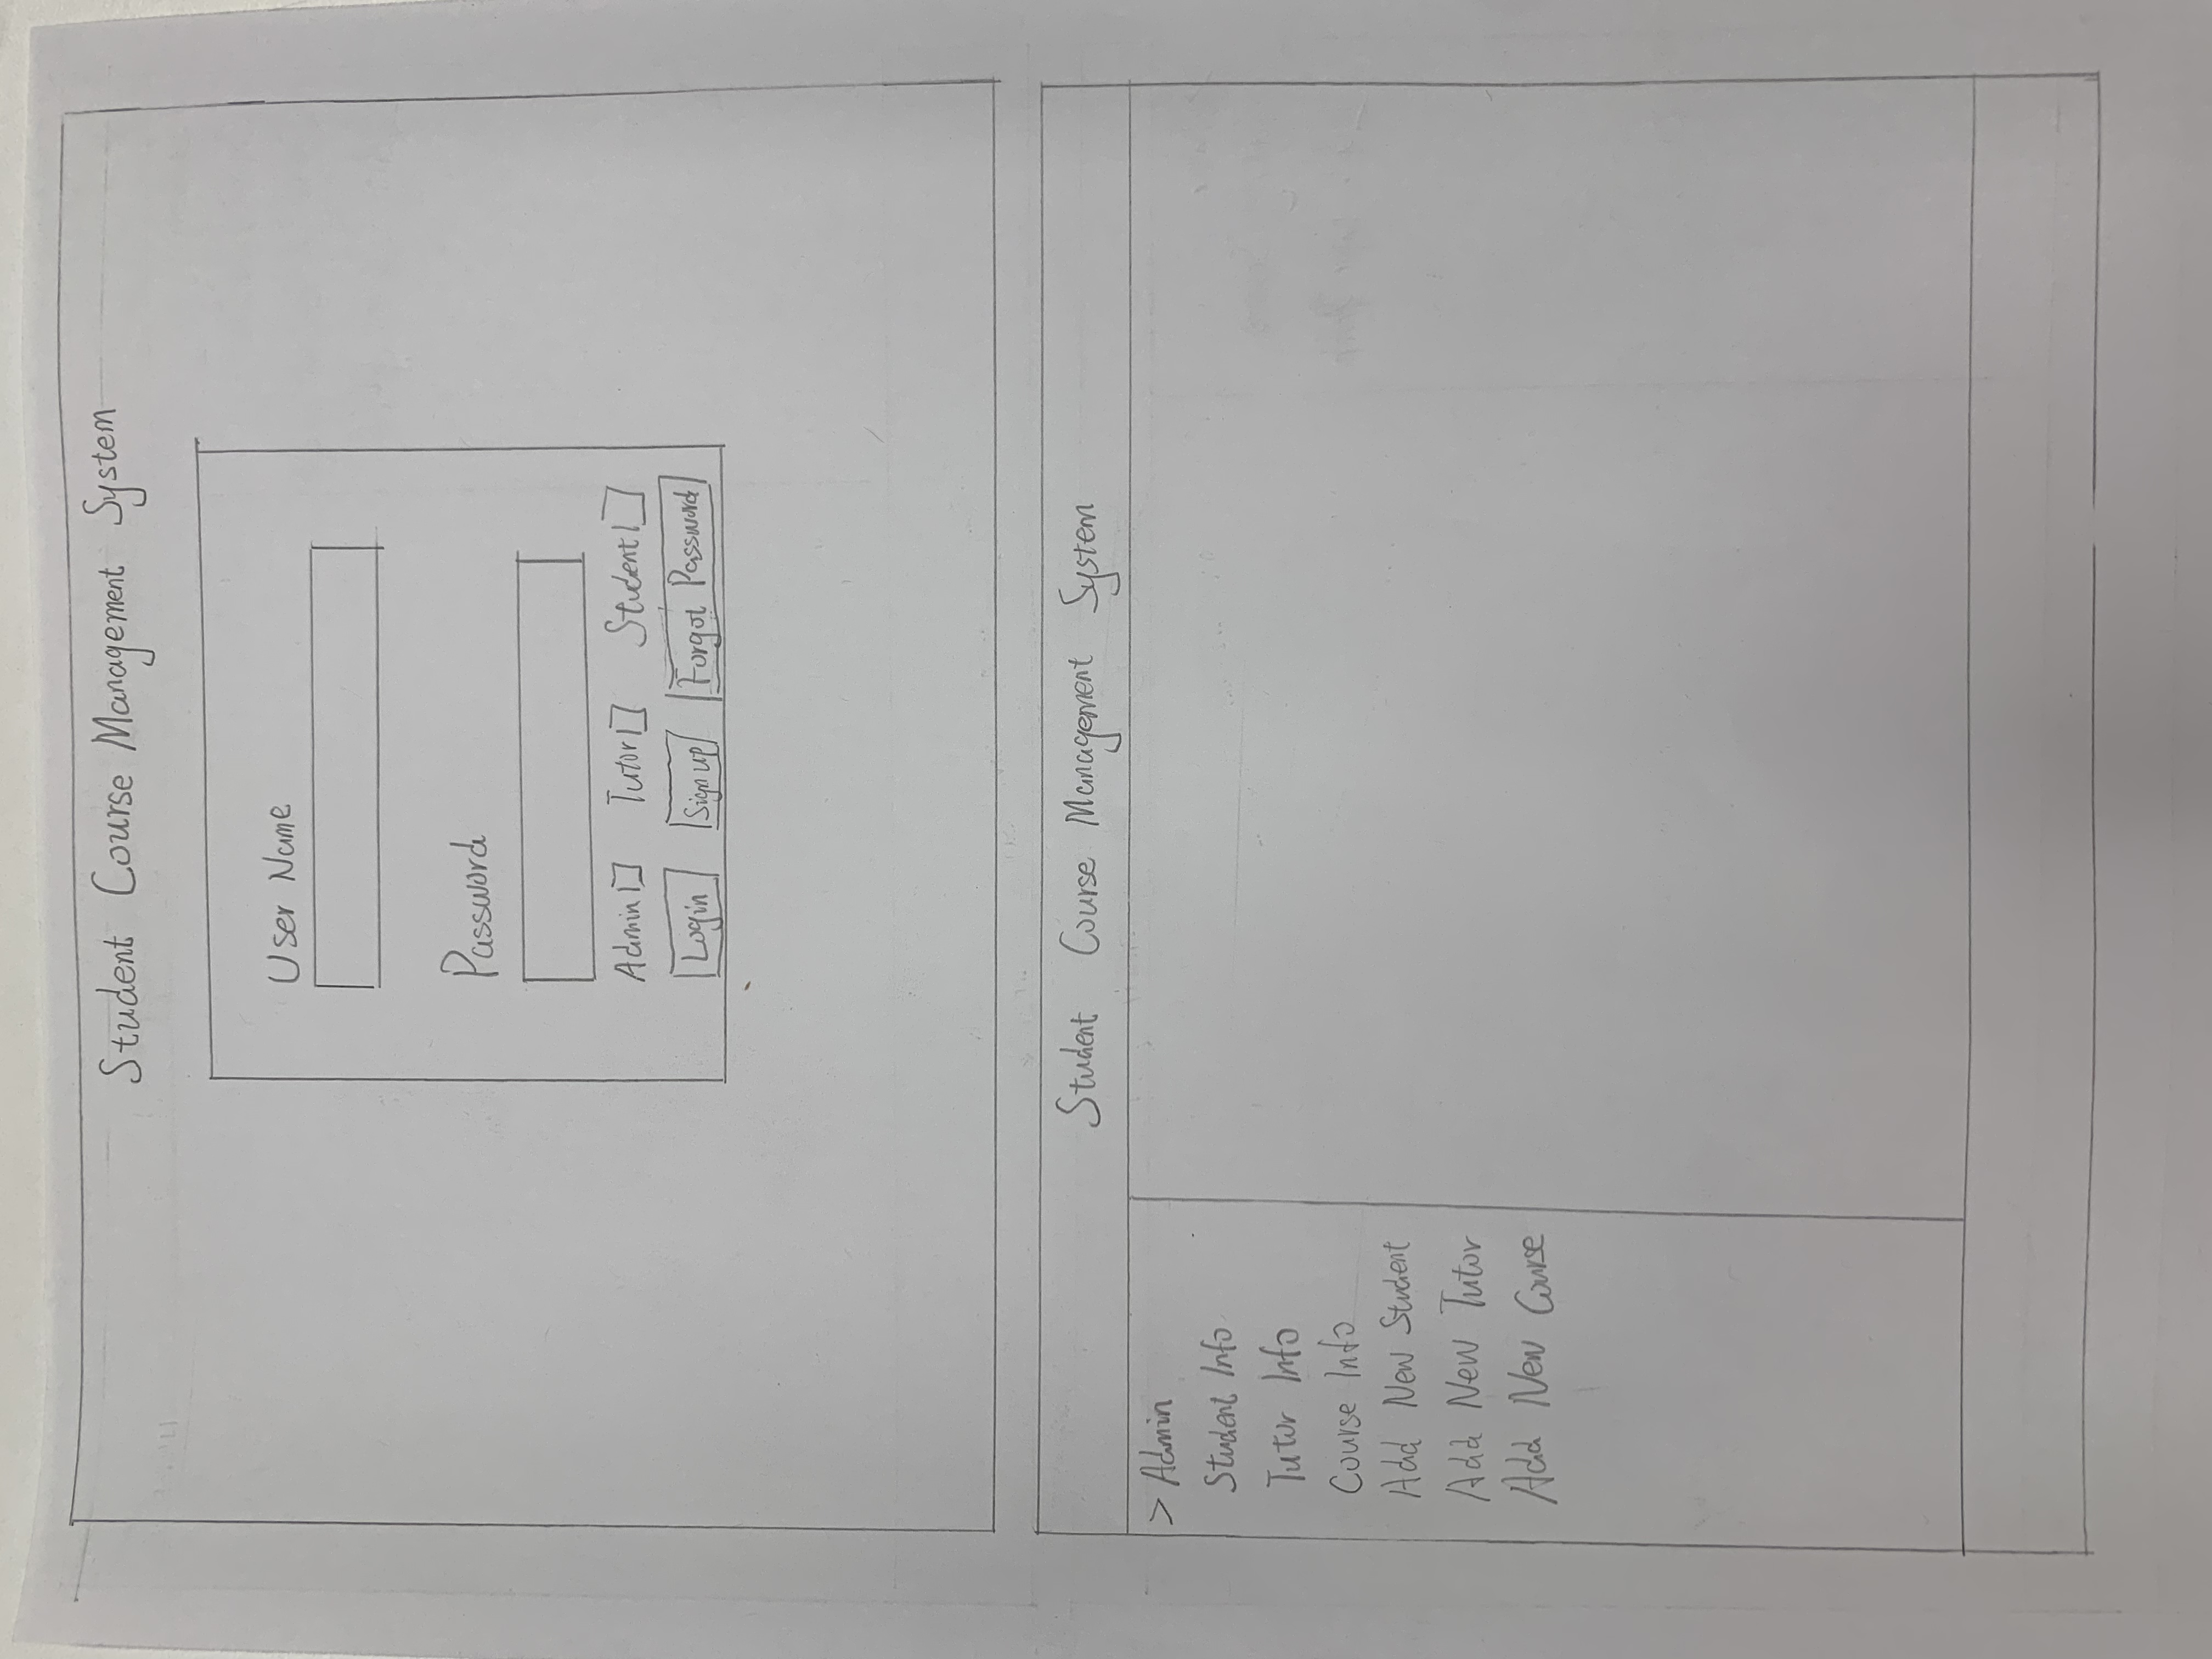 Student Course Management System
User Name
Password
Admin Tutor Student
Login Sign up Forgot Password
Student Course Management System
> Admin
Student Info
Tutor Info
Course Info
Add New Student
Add New Tutor
Add New Course